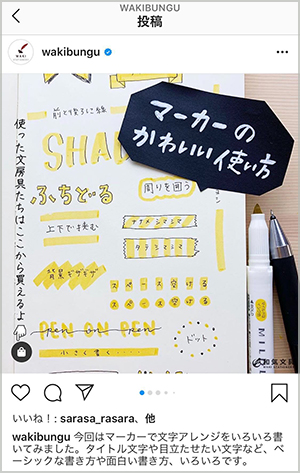 WAKIBUNGU
投稿
WAKI
wakibungu
前と後ろに線
SHAD
マーカーの
かわいい使い方
使った文房具たちはここから買えるよ
ふちどる
周りを囲う
上下で挟む
ナナメシマシマ
タテシマシマ
背景ギザギザ
スペース空ける
スペース空ける
PEN ON PEN
小さく書く・・・・
ドット
MIL
和気文具
いいね！: sarasa_rasara、他
wakibungu 今回はマーカーで文字アレンジをいろいろ書
いてみました。タイトル文字や目立たせたい文字など、ベ
ーシックな書き方や面白い書き方、いろいろです。